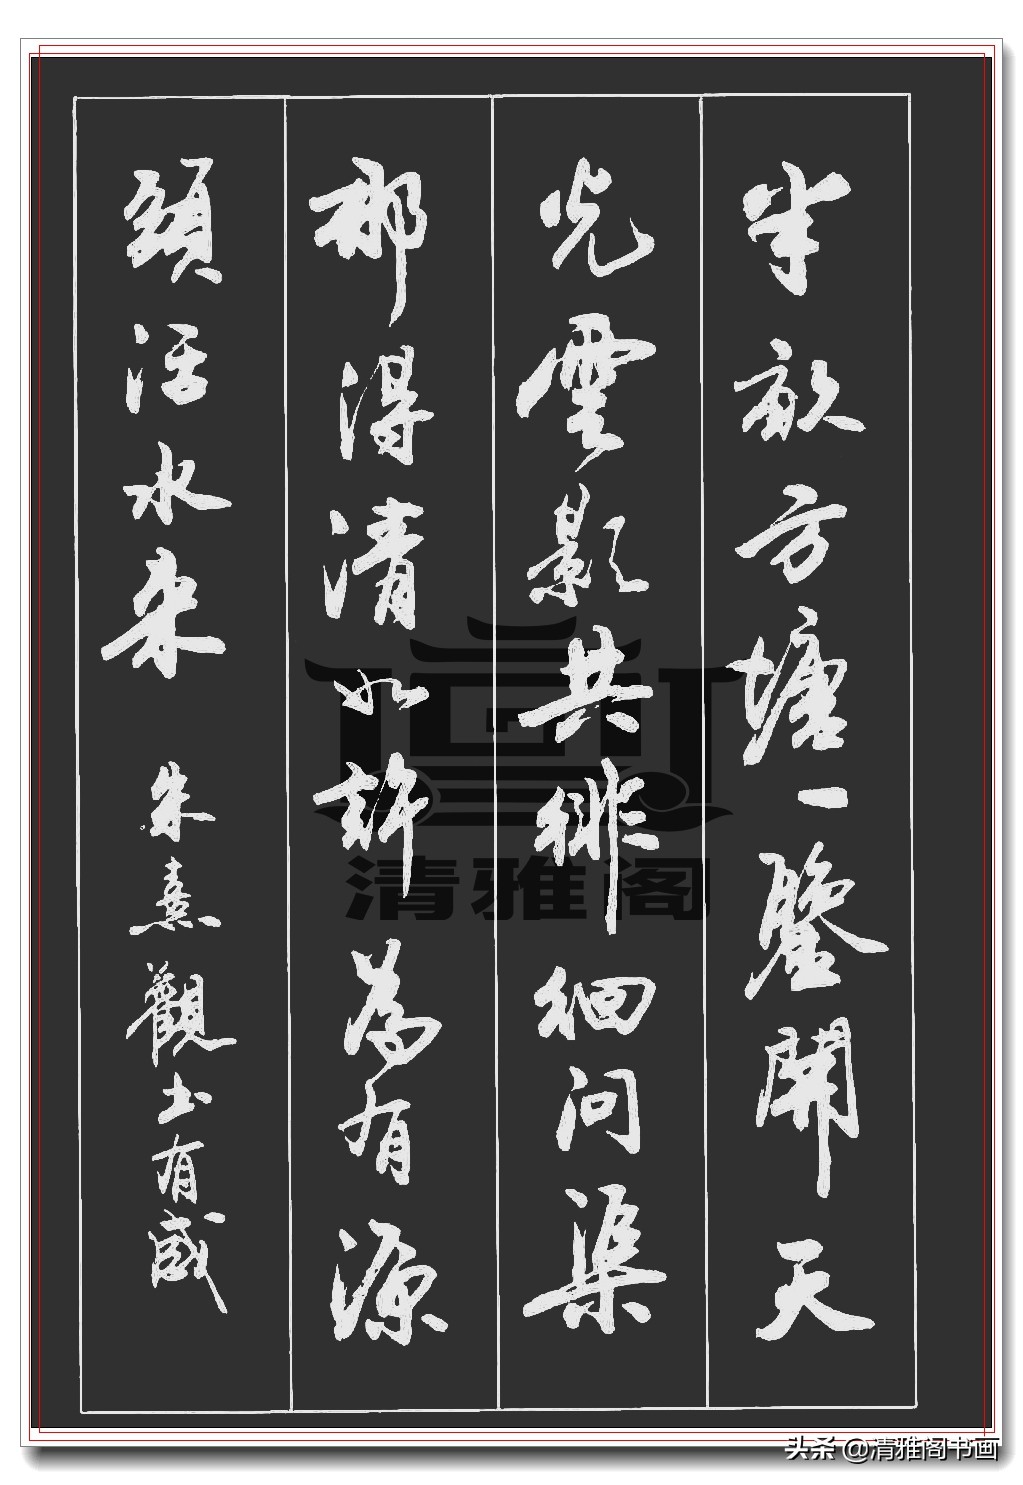 半畝方塘一鑒開天
光雲影共徘徊問渠
那得清如許為有源
頭活水來 朱熹觀土有感
清雅阁
头条 @清雅阁书画